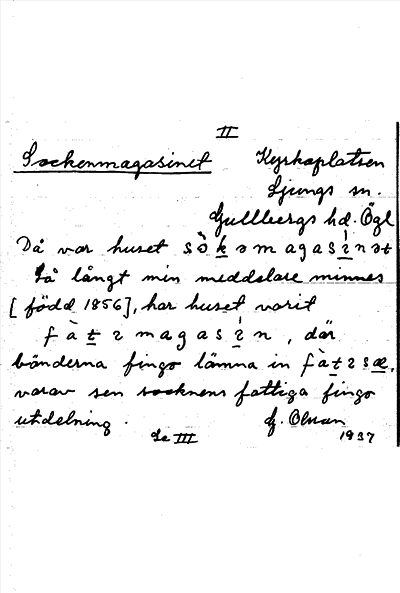 II
Sockenmagasinet Kyrkoplatsen
Ljungs sn.
Gullbergs hd. Ögl
Då var huset sò̀kəmagasínət
Så långt min meddelare minnes
[född 1856], har huset varit
fàtɩmagasín, där
bönderna fingo lämna in fàtɩsæ,
varav sen socknens fattiga fingo
utdelning. G. Olson
Se III 1937